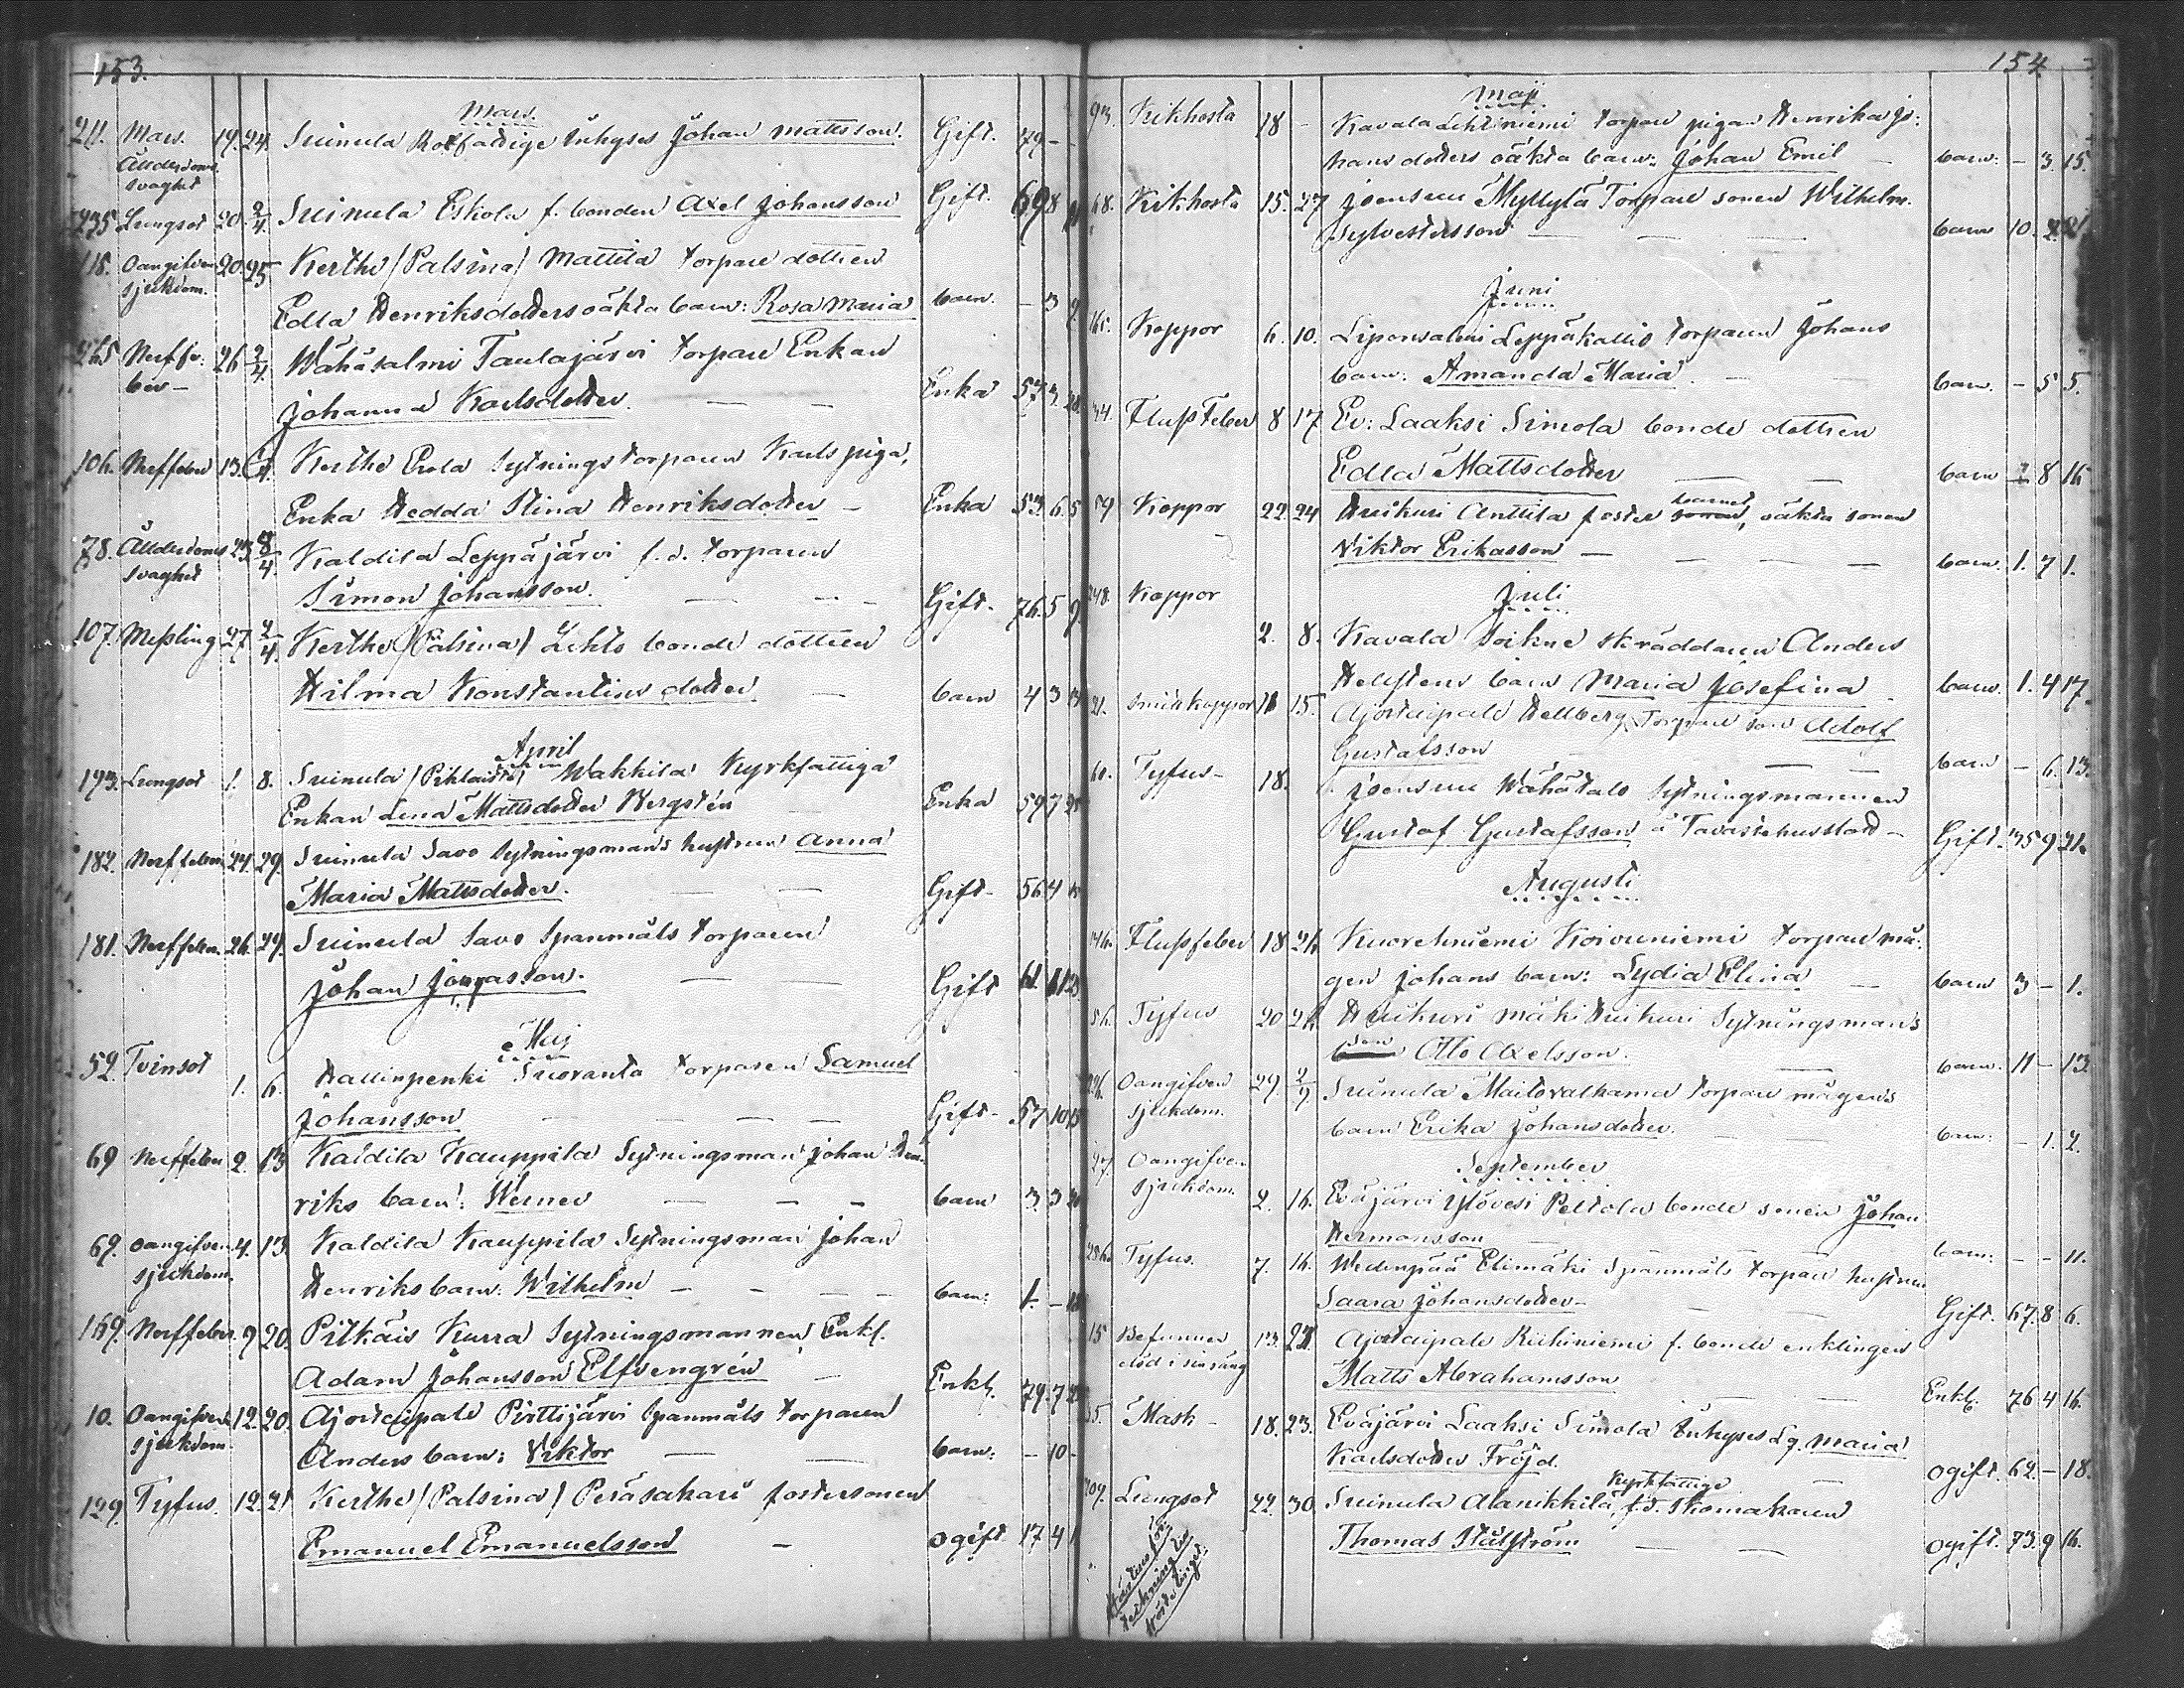 153.
Mars.
211. Mars. 19. 24. Suinula Rotfattige Inhyses Johan Mattsson. Gift. 79 - -
Ålderdoms
svaghet
235 Lungsot 20. 2/4. Suinula Eskola f. bonden Axel Johansson Gift. 69 8
118. Oangifven 20. 25 Kerthe (Palsina) Mattila torpare dottren
sjukdom.
Edla Henriksdotters oäkta barn: Rosa Maria barn. - 3 9.
265 Nerffe- 26 2/4. Wähäsalmi Taulajärvi torpare Enkan
ber -
Johanna Karlsdotter. — — Enka 57 3. 28.
106. Nerffeber 13. Kerthe Erola Sytningstorparen Karls piga,
Enka Hedda Stina Henriksdotter - Enka 53. 6 5
78. Ålderdoms 23 8/4. Kaldila Leppäjärvi f. d. torparen
svaghet
Simon Johansson. — — - Gift. 76. 5 9.
107. Messling 27. 2/4. Kerthe (Palsina) Lehto bonde dottren
Hilma Konstantins dotter — barn 4 3 14
April
193. Lungsot 1. 8. Suinula Wakkila Kyrkfattiga
Enkan Lena Mattsdotter Bergstén Enka 59 7 25
182. Nerffeber 24. 29. Suinula Savo Sytningsmans hustrun Anna
Maria Mattsdotter. — — Gift - 56 4
181. Nerffeber. 26. 29. Suinula Savo Spanmåls torparen
Johan Jonasson. — — Gift 61. 11 23
Maj
52. Tvinsot 1. 6. Hallinpenki Suoranta torparen Samuel
Johansson — — — Gift - 57 10 13
69 Nerffeber 2. 13 Kaldila Kauppila Sytningsman Johan Hen-
riks barn: Werner — — - barn 3 3 20
69. Oangifven 4. 13. Kaldila Kauppila Sytningsman Johan
sjukdom.
Henriks barn: Wilhelm — — — barn: 1. - 18
169. Nerffeber. 9 20. Pitkäis Kurra Sytningsmannen Enkl.
Adam Johansson Elfvengrén — Enkl. 79. 7 2
10. Oangifven 12. 20. Ajostaipale Pirttijärvi Spanmåls torparen
sjukdom.
Anders barn: Viktor — — barn: - 10 -
129. Tyfus. 12. 21 Kerthe (Palsina) Peräsakari fostersonen
Emanuel Emanuelsson — ogift 17 4 1
154.
Maj
93. Kikhosta 18 - Kavala Lehtiniemi torpare pigan Henrika Jo-
hans dotters oäkta barn: Johan Emil — barn: - 3 15.
68. Kikhosta 15. 27 Joensuu Myllylä Torpare sonen Wilhelm
Sylvestersson — — — barn 10. 2 21
Juni
165. Koppor 6. 10. Liponsalmi Leppäkallio torparen Johans
barn: Amanda Maria. — — barn. - 5 5.
34. Flussfeber 8 17 Ev: Laaksi Simola bonde dottren
Edla Mattsdotter — — barn 8 16
59 Koppor 22 24 Huikuri Anttila foster barnet sonen, oäkta sonen
Viktor Eriksson — — — barn. 1. 7 1.
Juli
248. Koppor 2. 8. Kavala Soikne skräddaren Anders
Hellstens barn Maria Josefina barn. 1. 4 17.
21. Smittkoppor 11 15. Ajostaipale Hellberg Torpare son Adolf
Gustafsson — — barn - 6. 13.
60. Tyfus - 18. Joensuu Wähätalo Sytningsmannen
Gustaf Gustafsson i Tavastehusstad - Gift. 35 9 21.
Augusti
Flussfeber 18 26 Kuorehniemi Koivuniemi torpare må-
gen Johans barn: Lydia Elina — barn 3 - 1.
56. Tyfus 20 26 Huikuri mäki Huikuri Sytningsmans
son Otto Axelsson. — barn. 11 - 13.
Oangifven 29. 2/9 Suinula Maitovalkama torpare mågens
sjukdom.
barn Erika Johansdotter. — — barn: - 1. 2.
September
27. Oangifven 2. 16. Eväjärvi Ylövesi Peltola bonde sonen Johan
sjukdom.
Hermansson — barn: - - 11.
Tyfus. 7. 16. Wedenpää Elimäki Spanmåls torpare hustrun
Saara Johansdotter — — Gift. 67. 8 6.
15 Befunnen 13. 23. Ajostaipale Riihiniemi f. bonde enklingen
död i sin säng
Matts Abrahamsson — — Enkl. 76 4 16.
35. Mask - 18. 23. Eväjärvi Laaksi Simola Inhyses Lg. Maria
Karlsdotter Fröjd. — ogift. 62. - 18.
209. Lungsot 22. 30. Suinula Alanikkilä, Kyrkfattige f. d. Skomakaren
Thomas Stålström — — ogift. 73. 9 16.